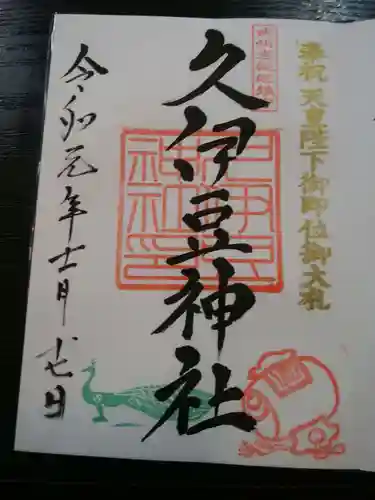 奉祝 天皇陛下御即位御大礼
久伊豆神社
令和元年十一月十七日